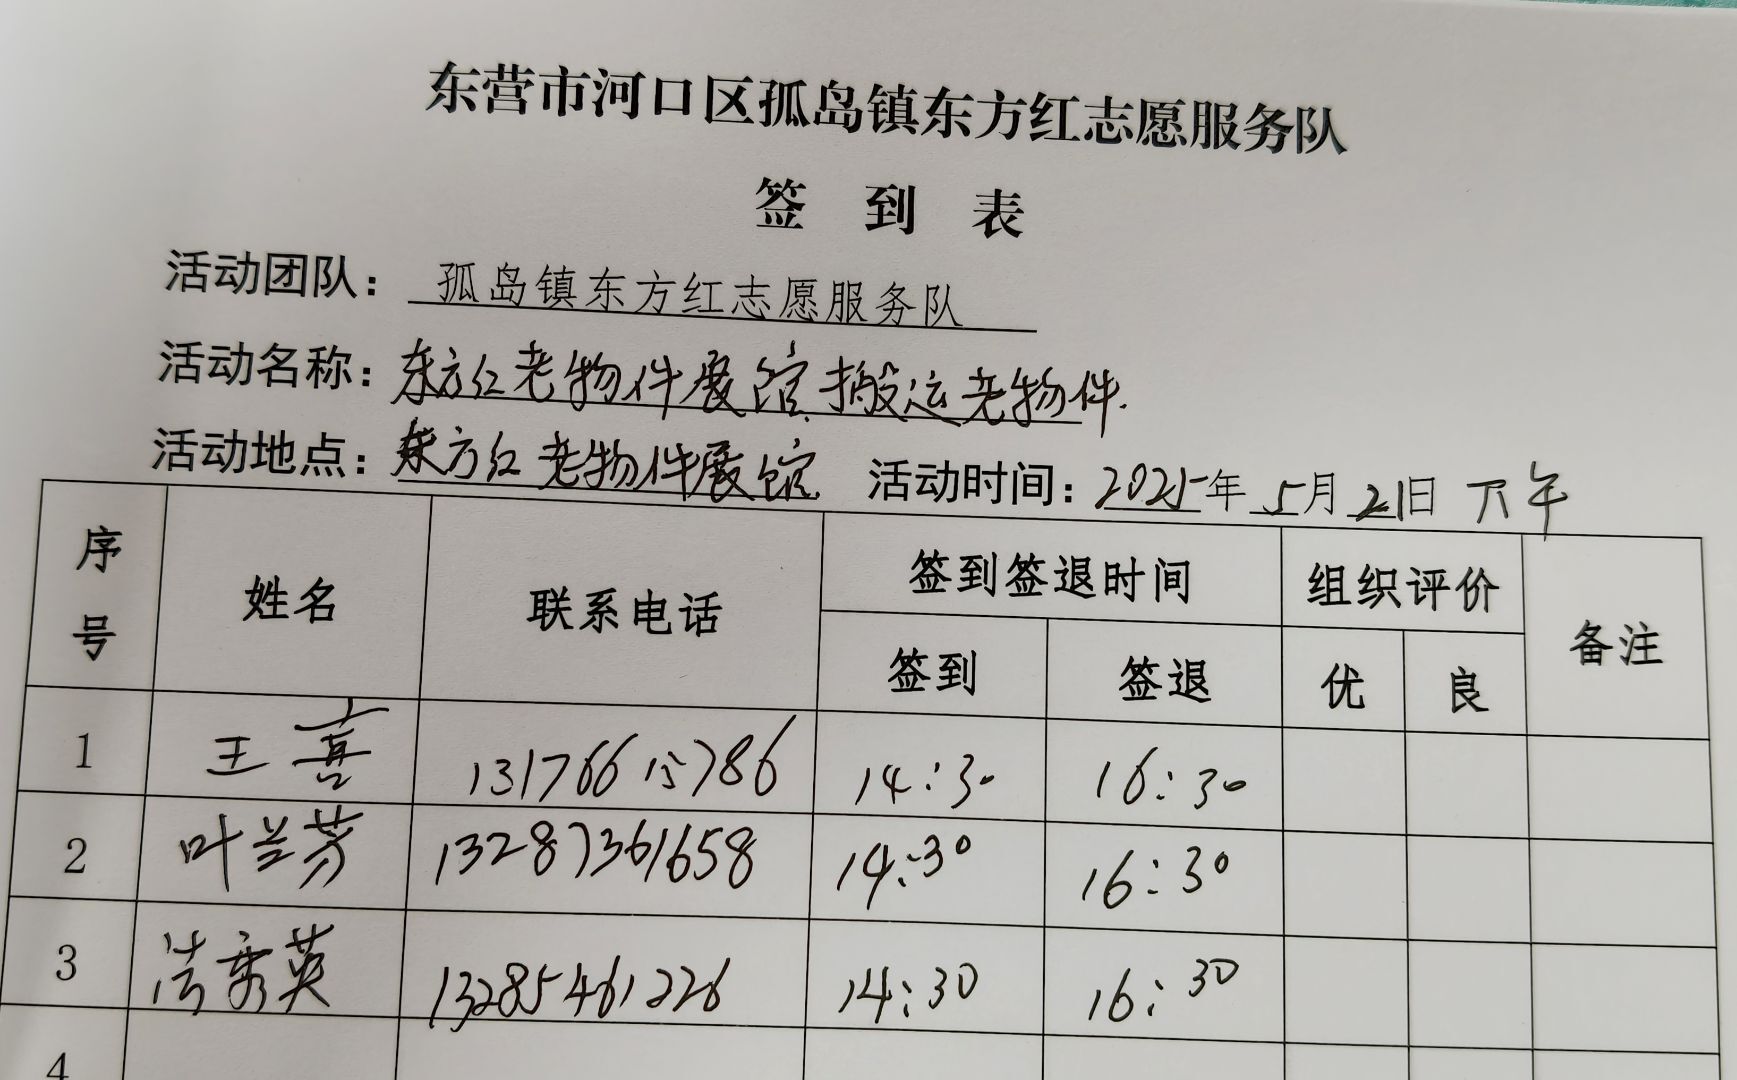 东营市河口区孤岛镇东方红志愿服务队
签到表
活动团队：孤岛镇东方红志愿服务队
活动名称：东方红老物件展馆搬运老物件.
活动地点：东方红老物件展馆 活动时间：2025年5月21日 下午
序号 姓名 联系电话 签到签退时间 组织评价 备注
签到 签退 优 良
1 王喜 13176615786 14:30 16:30
2 叶兰芳 13287361658 14:30 16:30
3 秀英 13285461226 14:30 16:30
4